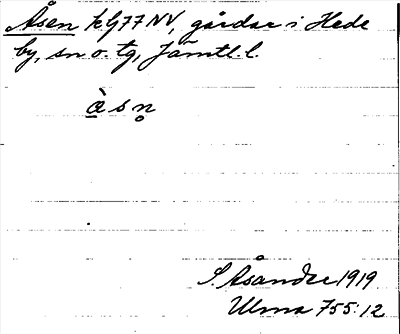 Åsen kG77NV, gårdar i Hede
by, sn o. tg, Jämtl. l.
å̀ s n̥
S. Åsander 1919
Ulma 755:12